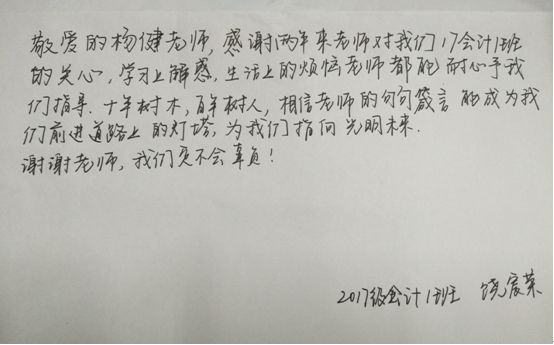 敬爱的杨健老师,感谢两年来老师对我们17会计1班
的关心,学习上解惑,生活上的烦恼老师都能耐心予我
们指导.十年树木,百年树人,相信老师的句句箴言能成为我
们前进道路上的灯塔,为我们指向光明未来.
谢谢老师,我们定不会辜负!
2017级会计1班 饶宸荣